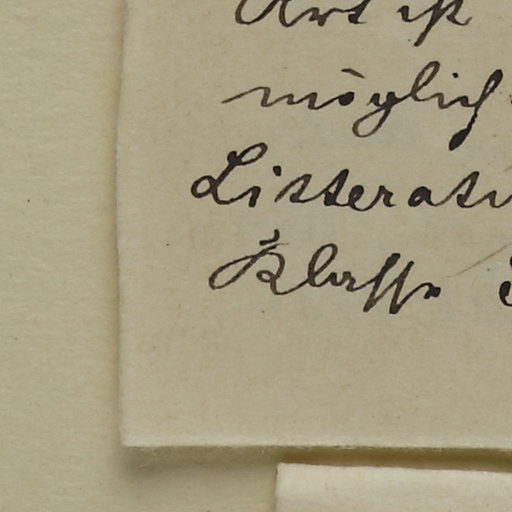 Art ist
möglich
Litteratu
Klasse